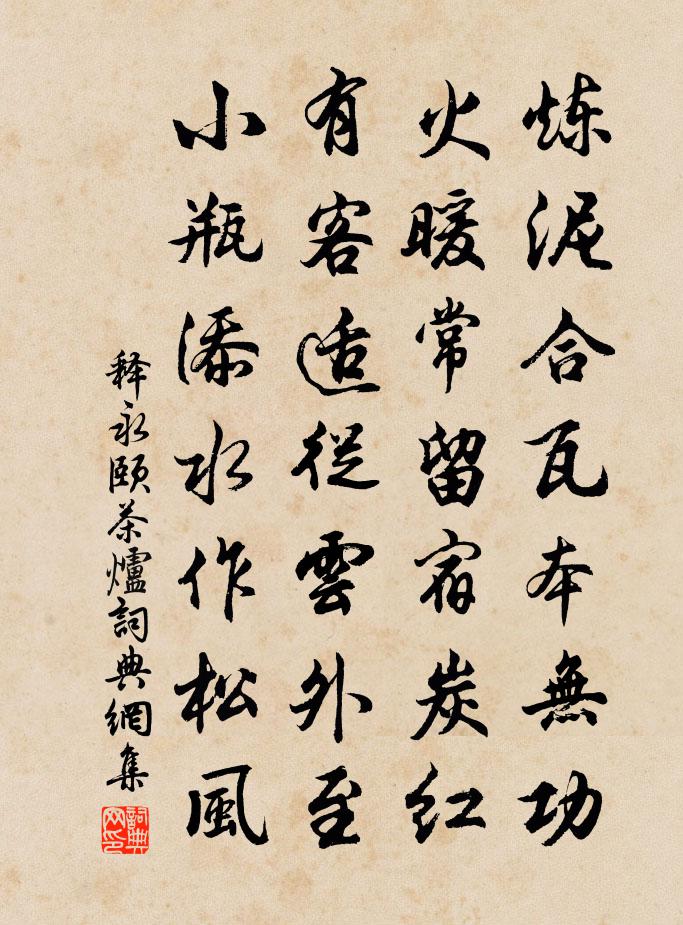 炼泥合瓦本無功
火暖常留宿炭红
有客适從雲外至
小瓶添水作松風
释永颐茶爐詞典網集
詞典网印